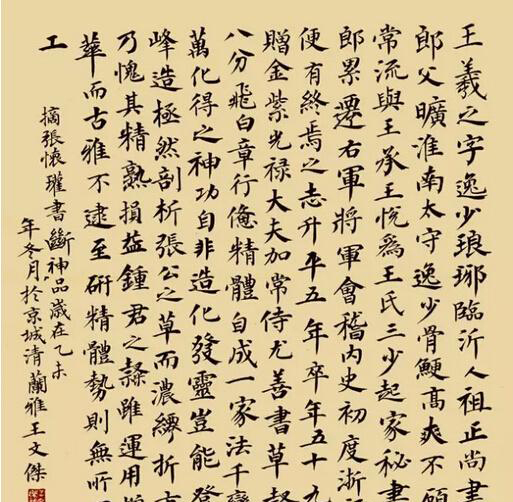 王羲之字逸少琅琊臨沂人祖正尚書
郎父曠淮南太守逸少骨鯁高爽不顧
常流與王承王悅為王氏三少起家秘書
郎累遷右軍將軍會稽內史初度浙
便有終焉之志升平五年卒年五十九
贈金紫光祿大夫加常侍尤善書草
八分飛白章行俻精體自成一家法千變
萬化得之神功自非造化發靈豈能登
峰造極然剖析張公之草而濃縟折
乃愧其精熟損益鍾君之隸雖運用增
華而古雅不逮至研精體勢則無所
工
摘張懷瓘書斷神品歲在乙未
年冬月於京城清蘭雅王文傑